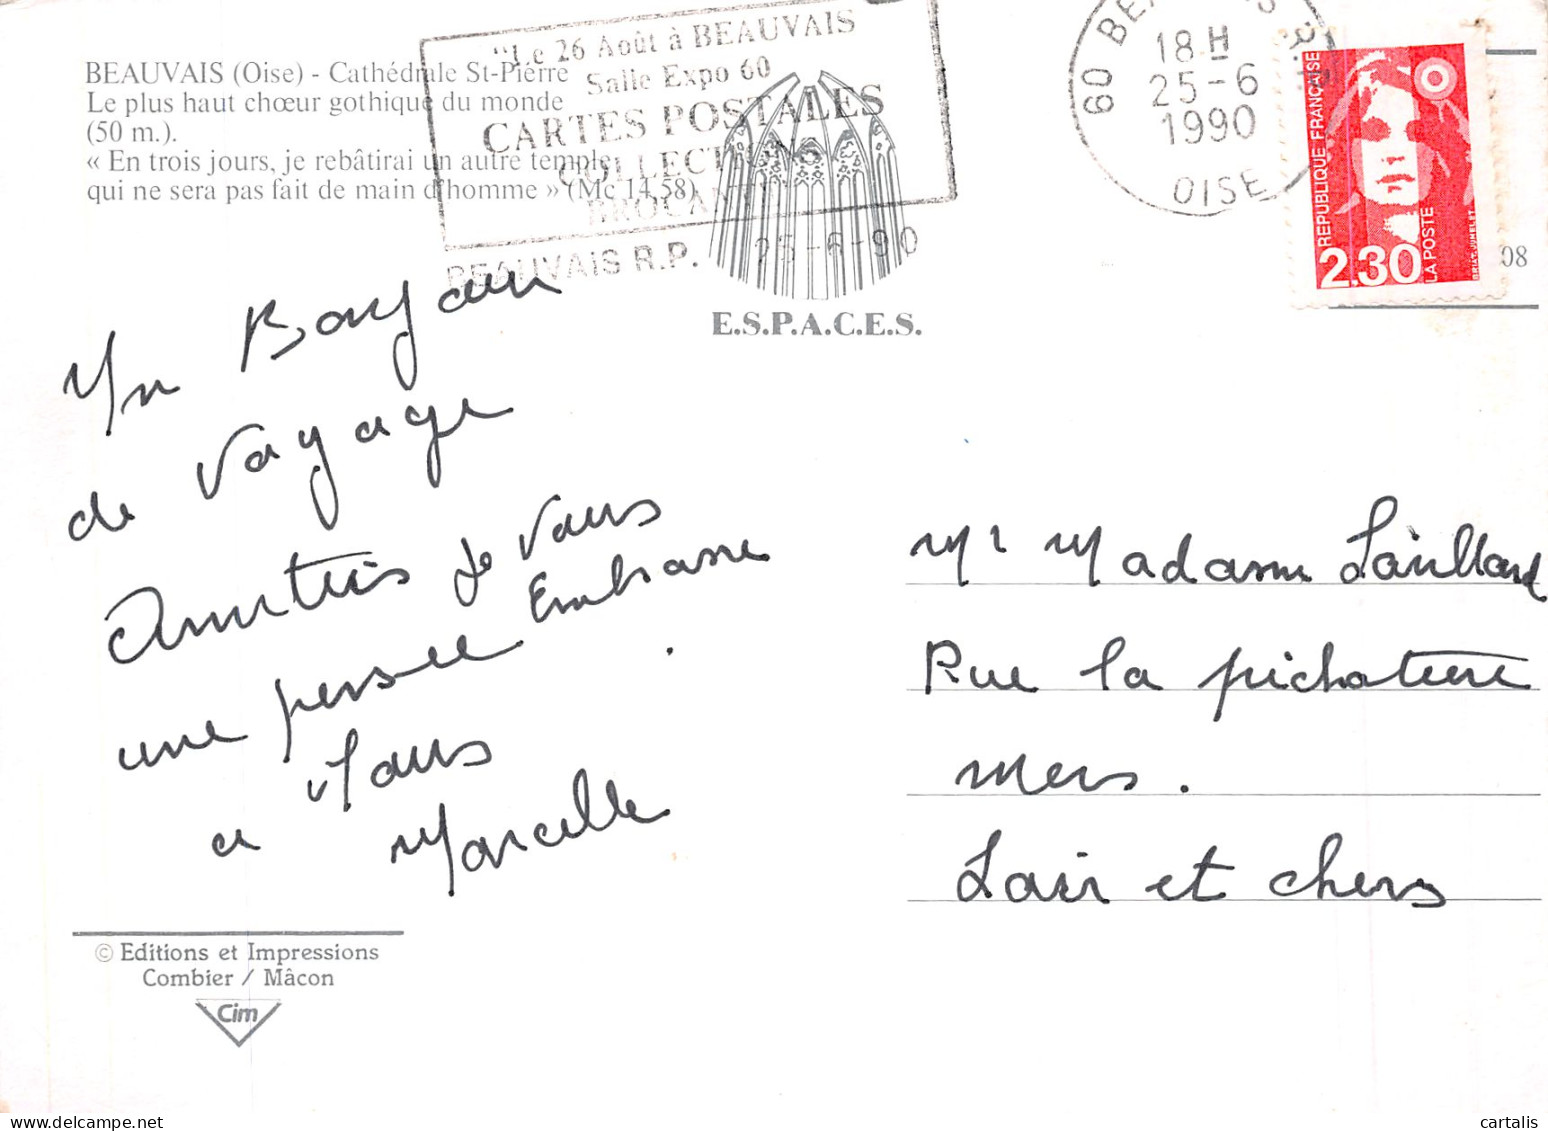 BEAUVAIS (Oise) - Cathédrale St-Pierre
Le plus haut chœur gothique du monde
(50 m.).
« En trois jours, je rebâtirai un autre temple
qui ne sera pas fait de main d'homme » (Mc 14,58)
"Le 26 Août à BEAUVAIS
Salle Expo 60
CARTES POSTALES
COLLECTIONS
BROCANTE
BEAUVAIS R.P. 25-6-90
E.S.P.A.C.E.S.
60 BEAUVAIS R.P.
18H
25-6
1990
OISE
REPUBLIQUE FRANÇAISE
2.30
LA POSTE
BRIAT-JUMELET
08
Un Bonjour
de Voyage
Amitiés Je Vous Embrasse
une pensée .
a Vous
Marcelle
Mr Madame
Rue la pichotiere
Mers.
Loir et chers
© Editions et Impressions
Combier / Mâcon
Cim
cartalis
delcampe.net